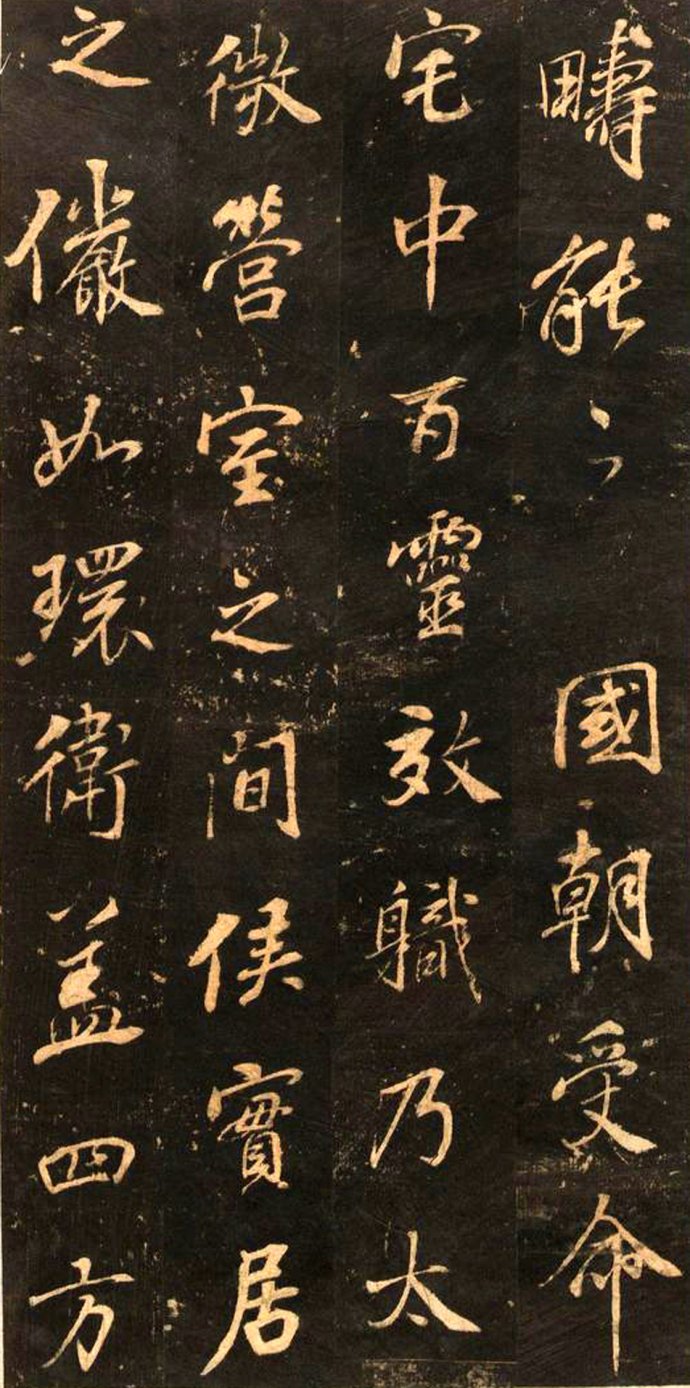 疇能之國朝受命
宅中百靈效職乃太
微營室之間侯實居
之儼如環衛盖四方